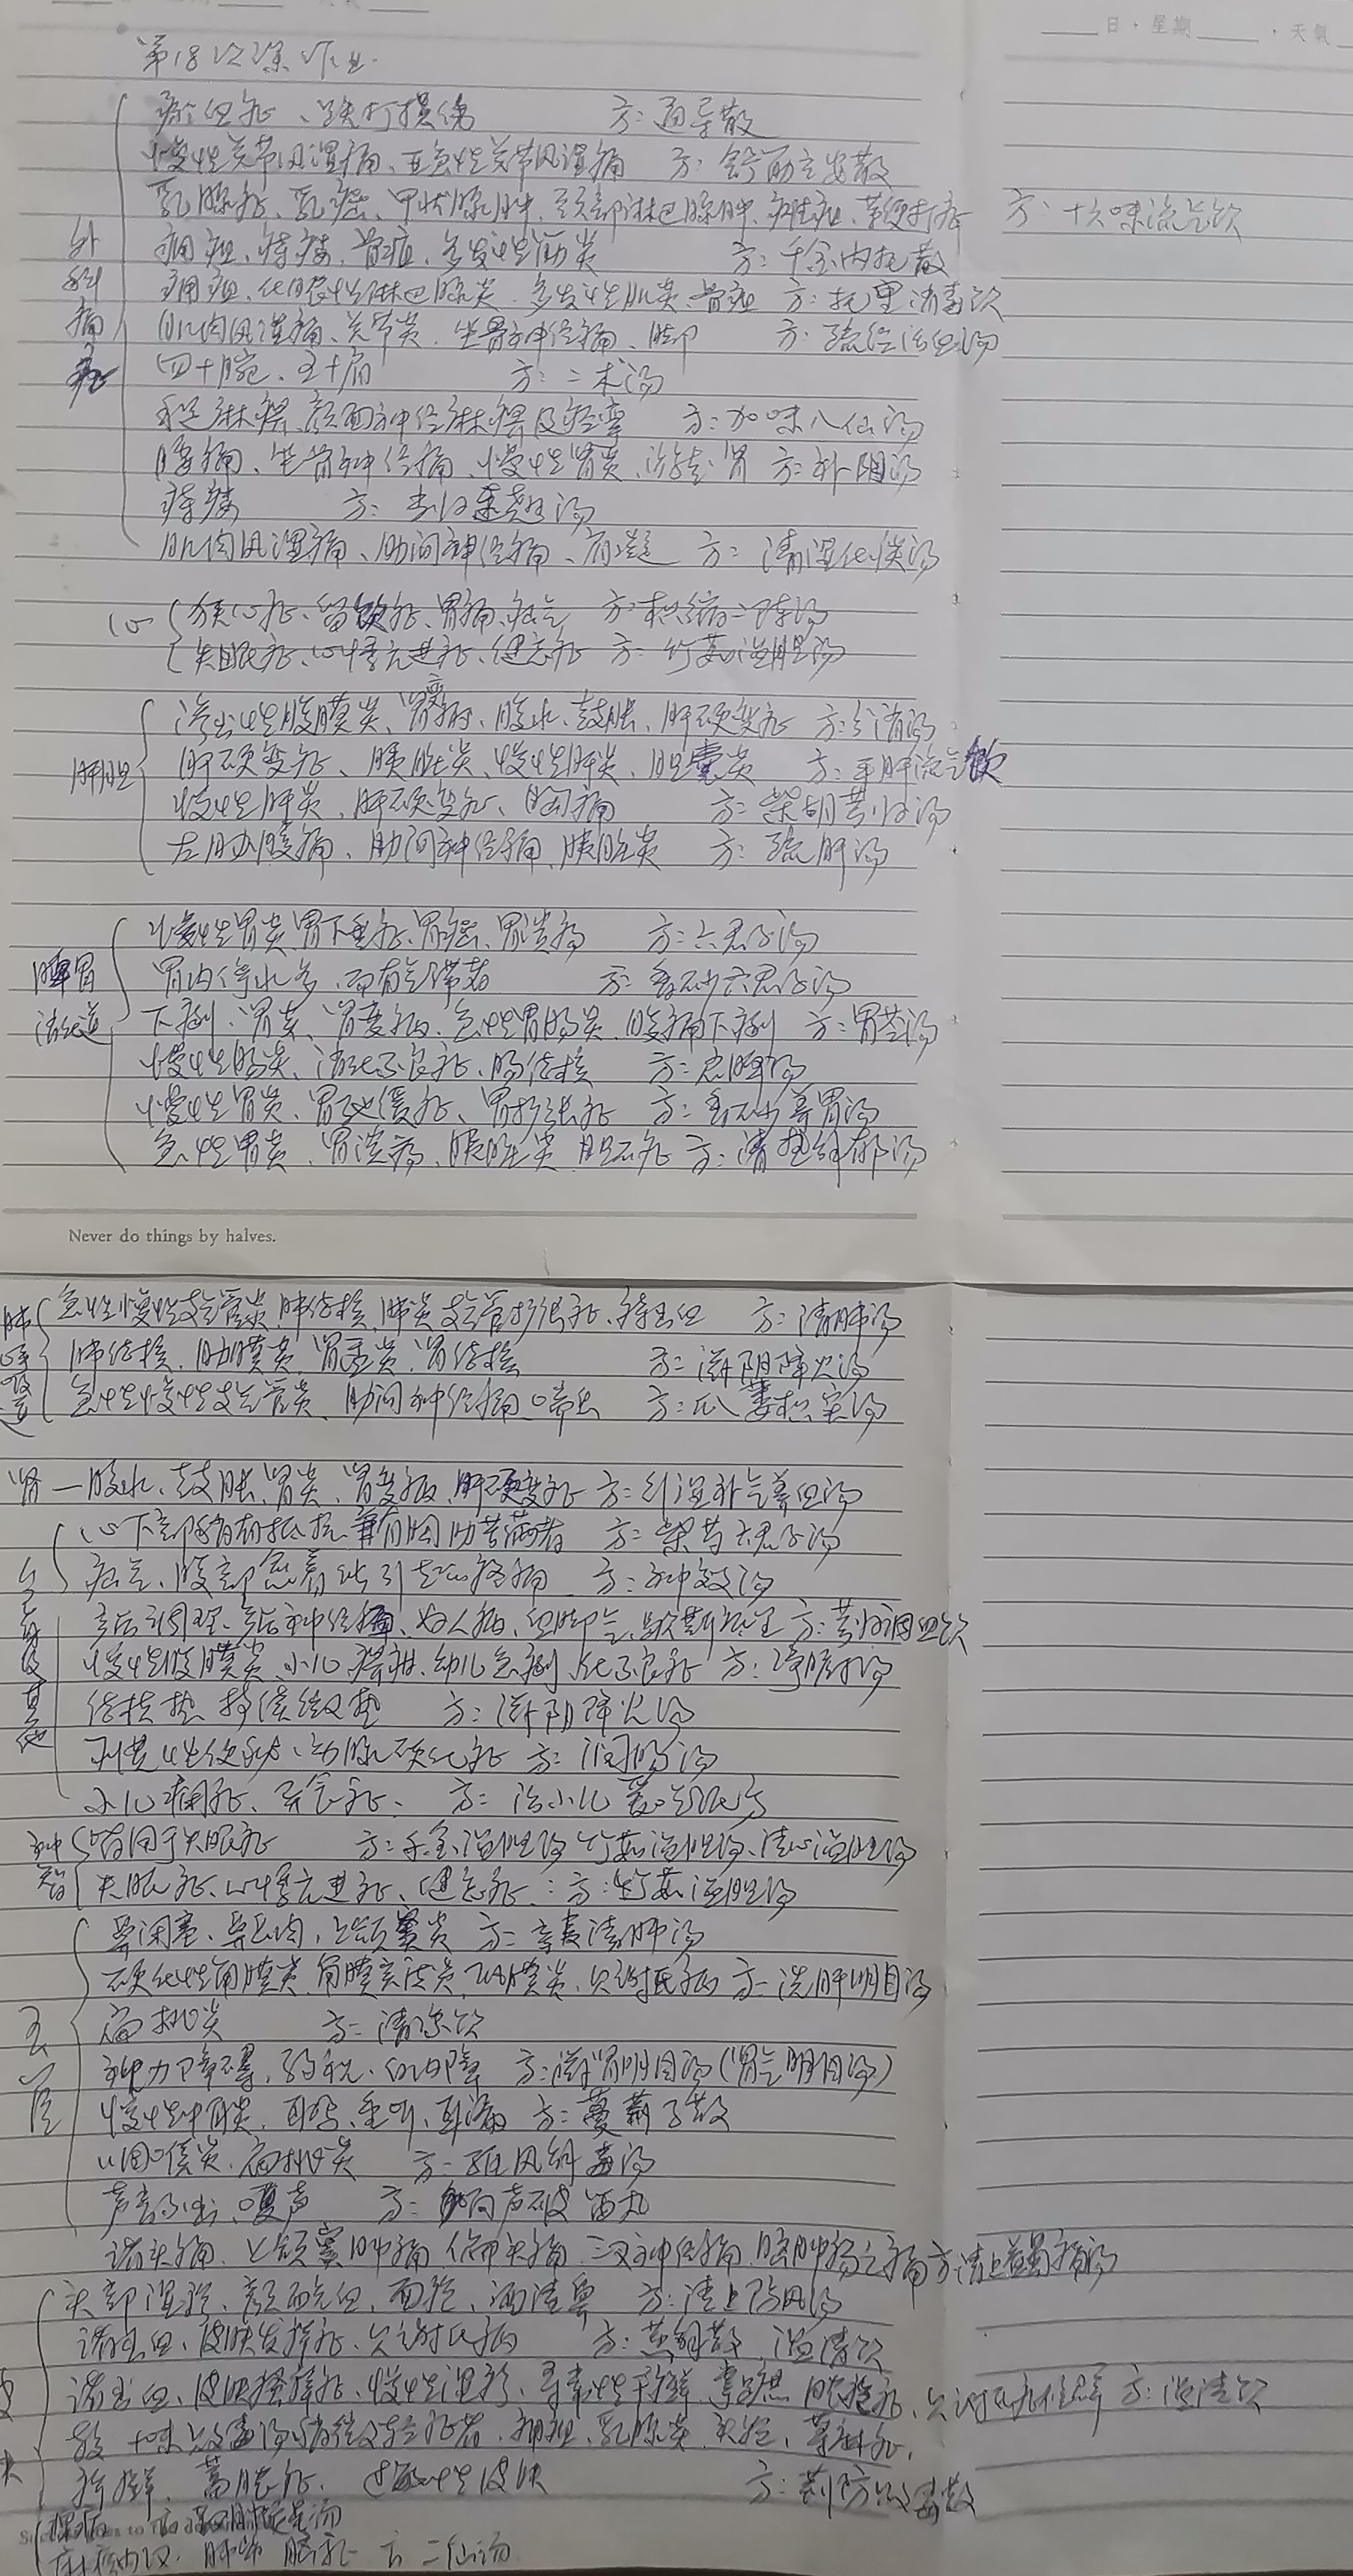 日·星期 ·天氣
第18次课作业.
瘀血证、跌打损伤 方:通导散
慢性关节风湿痛、亚急性关节风湿痛 方:舒筋立安散
乳腺炎、乳癌、甲状腺肿、颈部淋巴腺肿、 方:十六味流气饮
外科痛痹
痈疽、痔瘘、骨疽、多发性筋炎 方:千金内托散
痈疽、化脓性淋巴腺炎、多发性肌炎、骨疽 方:托里消毒饮
肌肉风湿痛、关节炎、坐骨神经痛、脚 方:疏经活血汤
四十腕、五十肩 方:二术汤
手足麻痹、颜面神经麻痹及痉挛 方:加味八仙汤
腰痛、坐骨神经痛、慢性肾炎、游走肾 方:补阴汤
痔瘘 方:当归连翘汤
肌肉风湿痛、肋间神经痛、 方:清湿化痰汤
心
狭心症、留饮症、胃痛、疝气 方:枳缩二陈汤
失眠症、心悸亢进症、健忘症 方:竹茹温胆汤
肝胆
渗出性腹膜炎、肾变病、腹水、鼓胀、肝硬变症 方:分消汤
肝硬变症、胰脏炎、慢性肝炎、胆囊炎 方:平肝流气饮
慢性肝炎、肝硬变症、胸痛 方:柴胡芎归汤
左胁腹痛、肋间神经痛、胰脏炎 方:疏肝汤
脾胃消化道
慢性胃炎、胃下垂症、胃癌、胃溃疡 方:六君子汤
胃内停水多,而有气滞者 方:香砂六君子汤
下痢、胃炎、肾变病、急性胃肠炎、腹痛下痢 方:胃苓汤
慢性肠炎、消化不良症、肠结核 方:启脾汤
慢性胃炎、胃弛缓症、胃扩张症 方:香砂养胃汤
急性胃炎、胃溃疡、胰脏炎、胆石症 方:清热解郁汤
Never do things by halves.
肺呼吸道
急性慢性支气管炎、肺结核、肺炎、支气管扩张症、痔出血 方:清肺汤
肺结核、肋膜炎、肾盂炎、肾结核 方:滋阴降火汤
急性慢性支气管炎、肋间神经痛、喘息 方:瓜蒌枳实汤
肾—腹水、鼓胀、肾炎、肾变病、肝硬变症 方:行湿补气养血汤
心下部稍有抵抗,兼有胸胁苦满者 方:柴芍六君子汤
疝气、腹部 引起的疼痛 方:神效汤
产后调理、产后神经病、妇人病、血脚气、歇斯底里 方:芎归调血饮
慢性腹膜炎、小儿 疳、幼儿急痢、 化不良症 方:
及其他
结核热、持续微热 方:滋阴降火汤
习惯性便秘、动脉硬化症 方:润肠汤
小儿痫症、 方:治小儿
神智
皆用于失眠症 方:千金温胆汤、竹茹温胆汤、清心温胆汤
失眠症、心悸亢进症、健忘症: 方:竹茹温胆汤
五官
鼻闭塞、鼻瘜肉、上颌窦炎 方:辛夷清肺汤
硬化性角膜炎、角膜实质炎、 膜炎、贝谢氏病 方:洗肝明目汤
扁桃炎 方:清凉饮
视力下降、弱视、白内障 方:滋肾明目汤(肾气明目汤)
慢性中耳炎、耳鸣、重听、耳漏 方:蔓荆子散
咽喉炎、扁桃炎 方:驱风解毒汤
声音不出、嗄声 方:响声破笛丸
诸头痛、上颌窦肿痛、偏头痛、三叉神经痛、脑肿疡之痛 方:清上蠲痛汤
头部湿疹、颜面充血、面疱、酒渣鼻 方:清上防风汤
诸出血、皮肤发痒症、贝谢氏病 方: 散 温清饮
诸出血、皮肤搔痒症、慢性湿疹、寻常性干癣、掌蹠脓疱症、 方:温清饮
较十味败毒汤稍微轻症者、痈疽、乳腺炎、头疮、荨麻疹、
疥癣、蓄脓症、过敏性皮肤 方:荆防败毒散
汤
方 二仙汤